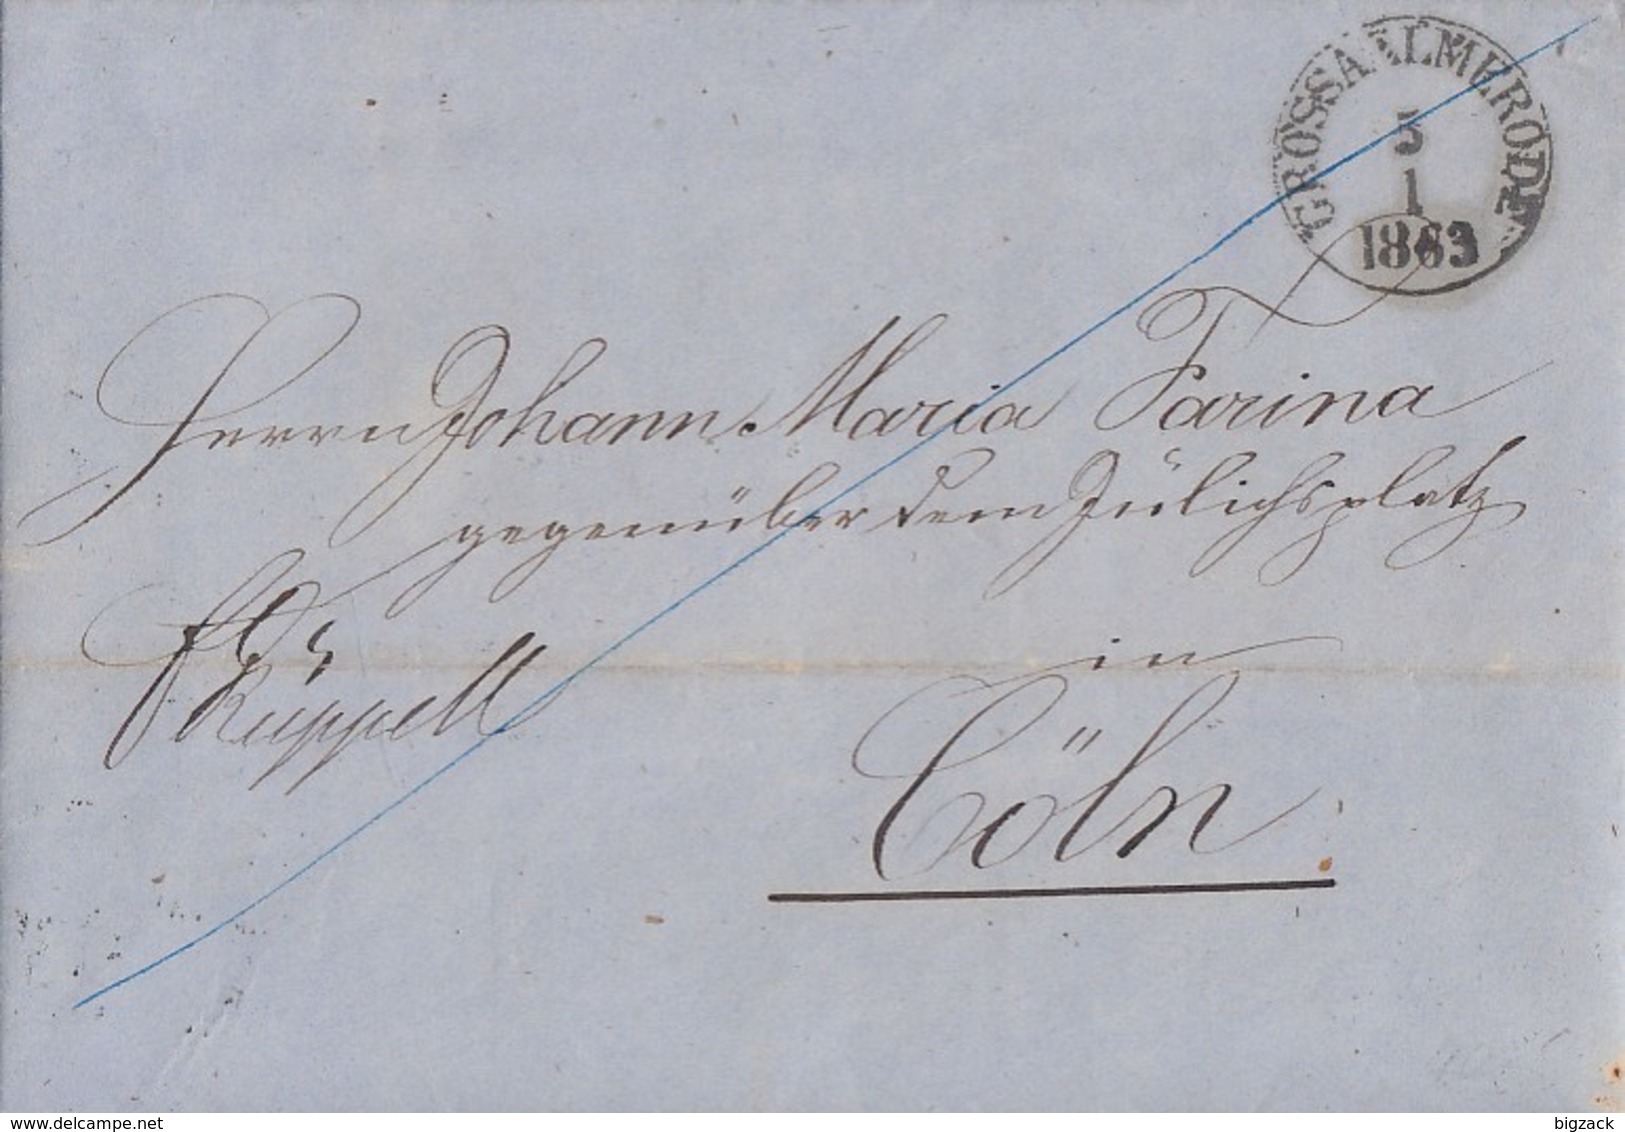 GROSSAALMERODE
5
1
1863
Herrn Johann Maria Farina
gegenüber dem Jülichsplatz
in
Rüppell
Cöln
www.delcampe.net
bigzack